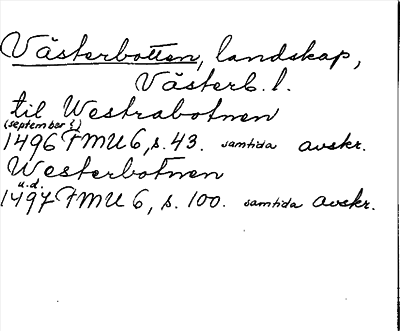 Västerbotten, landskap,
Västerb. l.
til Westrabotnen
(september
1496 FMU 6, s. 43. samtida avskr.
Westerbotnen
u.d.
1497 FMU 6, s. 100. samtida avskr.